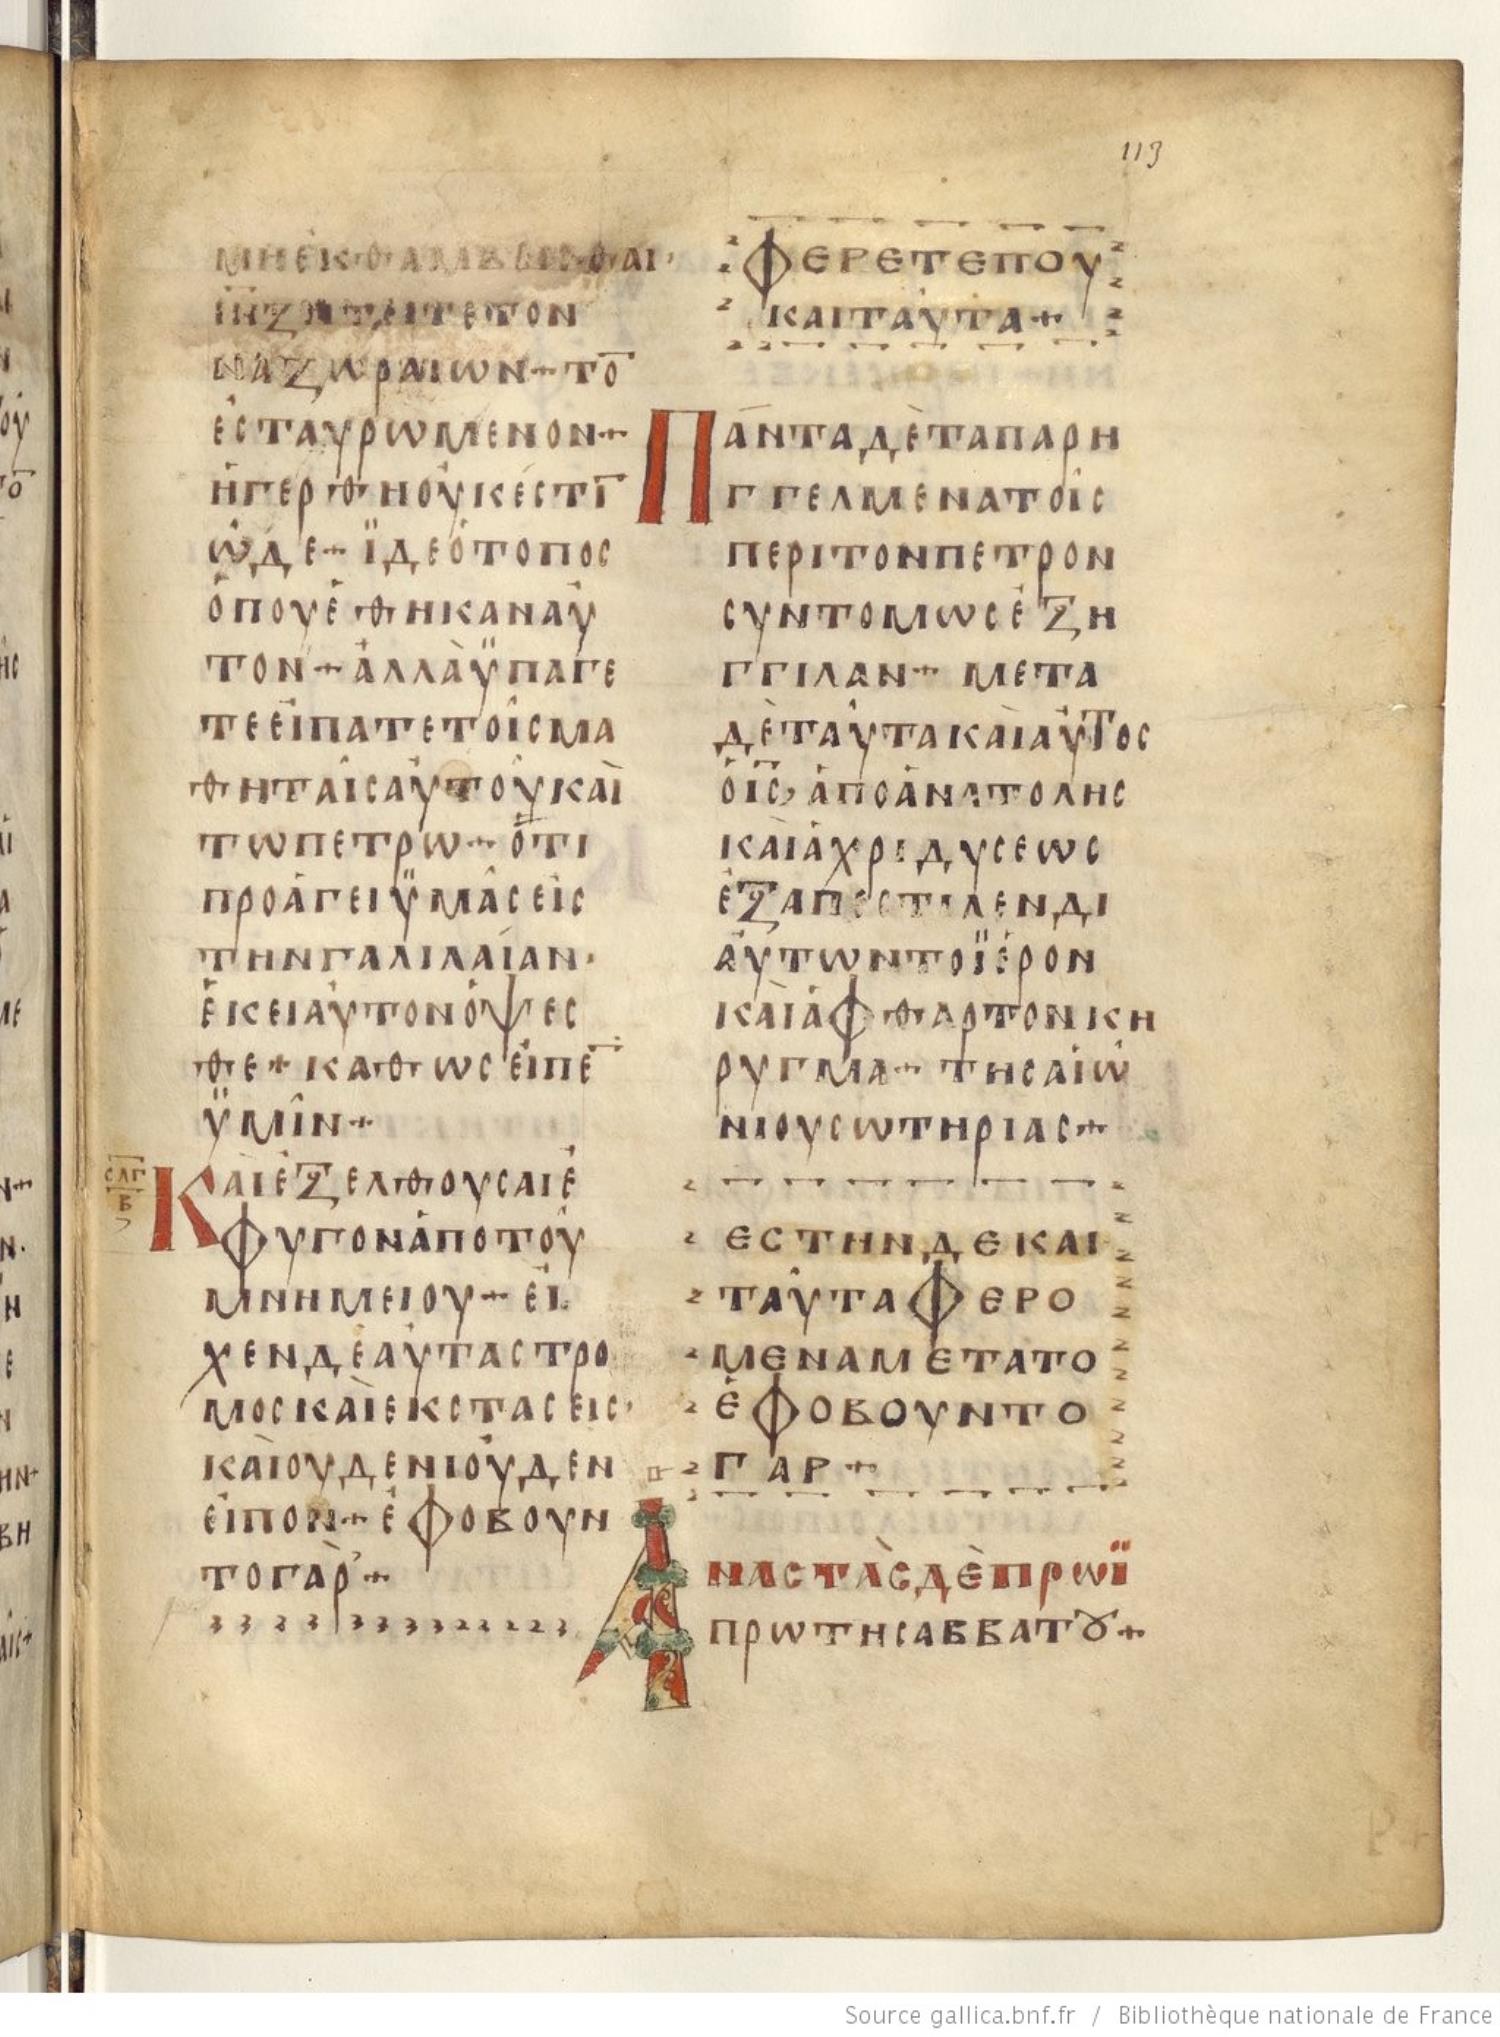 113
ΜΗἘΚΘΑΜΒΕΙΣΘΑΙ·
ΙΝ̅ΖΗΤΕΙΤΕΤΟΝ
ΝΑΖΩΡΑΙΩΝ+ΤΟ̅
ἘϹΤΑΥΡΩΜΕΝΟΝ+
ἨΓΕΡΘΗΟΥΚΕϹΤΙ̅
ὯΔΕ+ΪΔΕὉΤΟΠΟϹ
ὉΠΟΥἘΘΗΚΑΝΑΥ
ΤΟΝ+ἈΛΛᾺΫΠΑΓΕ
ΤΕΕΙΠΑΤΕΤΟΙϹΜΑ
ΘΗΤΑΙϹΑΥΤΟΥΚΑῚ
ΤΩΠΕΤΡΩ+ὍΤΙ
ΠΡΟΑΓΕΙΫΜΑϹΕΙϹ
ΤΗΝΓΑΛΙΛΑΙΑΝ·
ἘΚΕΙΑΥΤΟΝΟΨΕϹ
ΘΕ+ΚΑΘΩϹΕΙΠΕ̅
ΫΜΙΝ+
ϹΛΓ
Β
ΚΑΙἘΞΕΛΘΟΥϹΑΙἘ
ΦΥΓΟΝἈΠΟΤΟΥ
ΜΝΗΜΕΙΟΥ+ΕΙ
ΧΕΝΔΕΑΥΤΑϹΤΡΟ
ΜΟϹΚΑῚΕΚϹΤΑϹΕΙϹ·
ΚΑῚΟΥΔΕΝΙΟΥΔΕΝ
ΕΙΠΟΝ+ἘΦΟΒΟΥΝ
ΤΟΓᾺΡ+
ΦΕΡΕΤΕΠΟΥ
ΚΑΙΤΑΥΤΑ+
ΠΑΝΤΑΔῈΤΑΠΑΡΗ
ΓΓΕΛΜΕΝΑΤΟΙϹ
ΠΕΡΙΤΟΝΠΕΤΡΟΝ
ϹΥΝΤΟΜΩϹἘΞΗ
ΓΓΙΛΑΝ+ΜΕΤΑ
ΔῈΤΑΥΤΑΚΑῚΑΥΤΟϹ
ὉΙϹ̅,ἈΠΟἈΝΑΤΟΛΗϹ
ΚΑῚἈΧΡΙΔΥϹΕΩϹ
ἘΞΑΠΕϹΤΙΛΕΝΔΙ
ΑΥΤΩΝΤΟΪΕΡΟΝ
ΚΑῚἈΦΘΑΡΤΟΝΚΗ
ΡΥΓΜΑ+ΤΗϹΑΙΩ
ΝΙΟΥϹΩΤΗΡΙΑϹ+
ΕϹΤΗΝΔΕΚΑΙ
ΤΑΥΤΑΦΕΡΟ
ΜΕΝΑΜΕΤΑΤΟ
ἘΦΟΒΟΥΝΤΟ
ΓΑΡ+
ΑΝΑϹΤᾺϹΔῈΠΡΩΪ
ΠΡΩΤΗϹΑΒΒΑΤȢ+
Source gallica.bnf.fr / Bibliothèque nationale de France